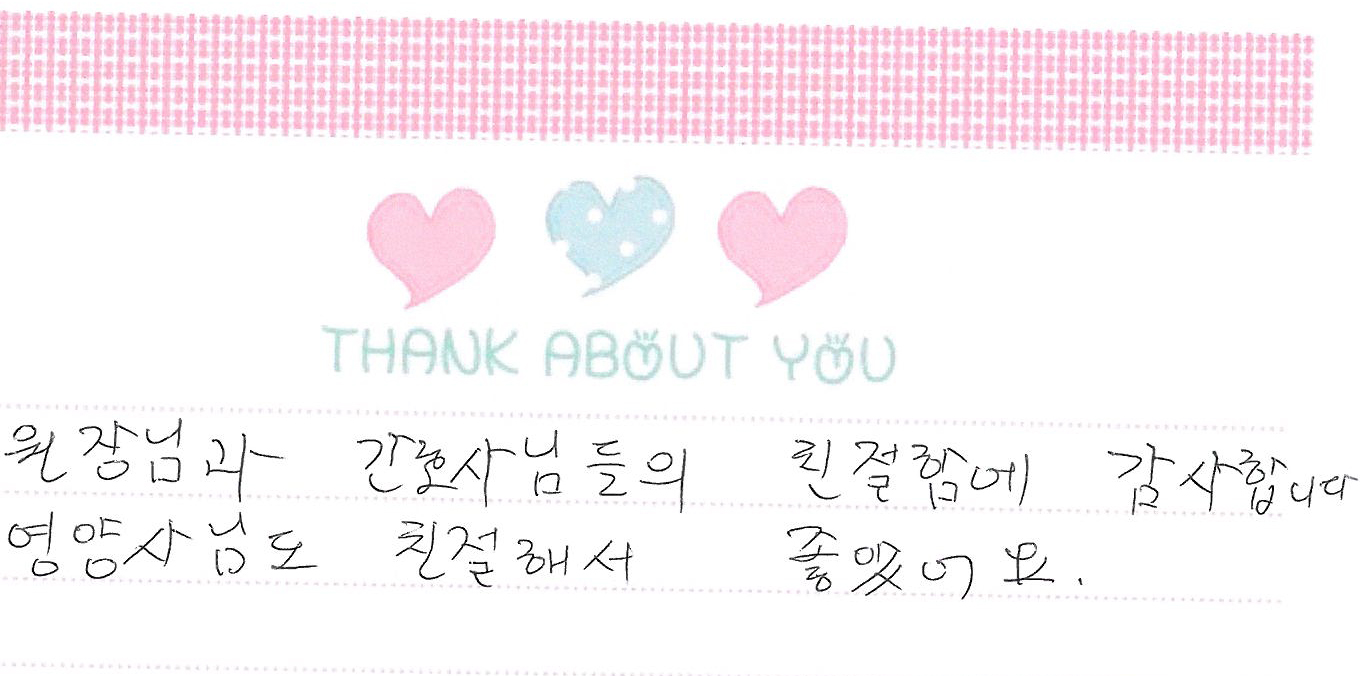 THANK ABOUT YOU
원장님과 간호사님들의 친절함에 감사합니다
영양사님도 친절해서 좋았어요.